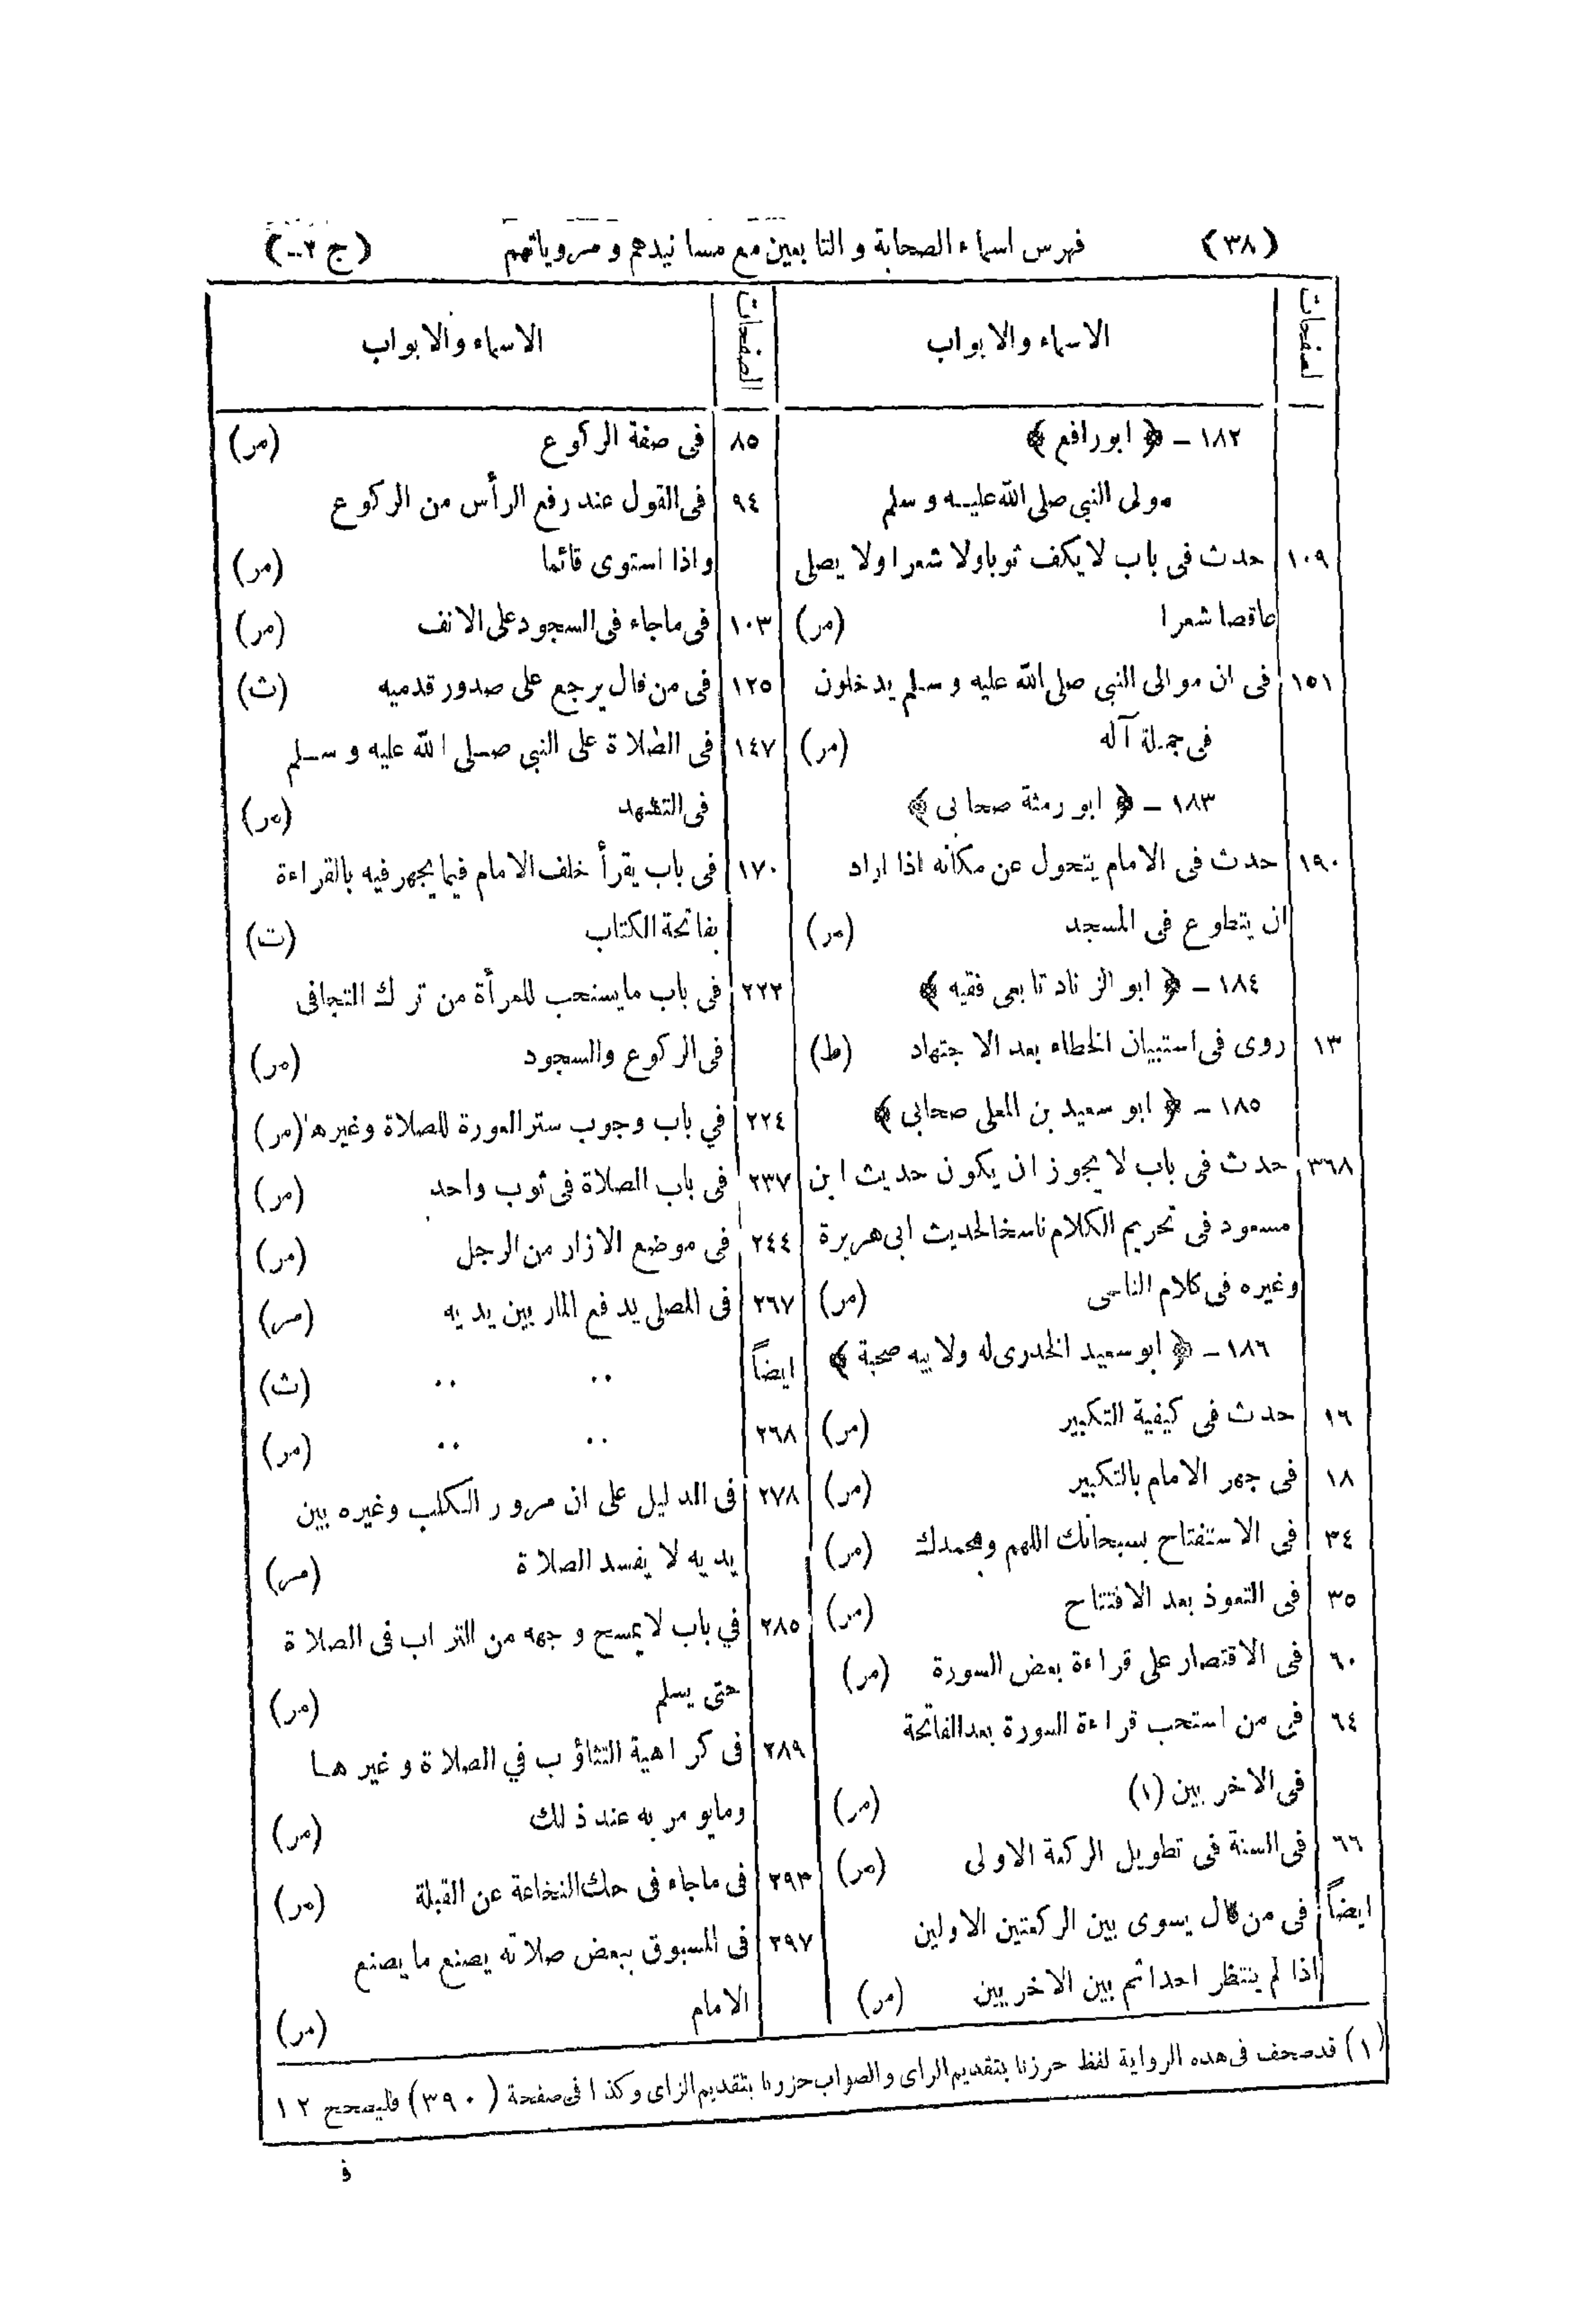 (٣٨) فهرس اسماء الصحابة والتابعين مع مسانيدهم ومروياتهم (ج ٢-)
لصفحات الاسماء والابواب
١٨٢ - ﴿ ابورافع ﴾
مولى النبى صلى الله عليه وسلم
١٠٩ حدث فى باب لا يكف ثوباولا شعرا ولا يصلى
عاقصا شعرا (مر)
١٥١ فى ان موالى النبى صلى الله عليه وسلم يدخلون
فى جملة آله (مر)
١٨٣ - ﴿ ابو رمثة صحابى ﴾
١٩٠ حدث فى الامام يتحول عن مكانه اذا اراد
ان يتطوع فى المسجد (مر)
١٨٤ - ﴿ ابو الزناد تابعى فقيه ﴾
١٣ روى فى استبيان الخطاء بعد الاجتهاد (ط)
١٨٥ - ﴿ ابو سعيد بن المعلى صحابى ﴾
٣٦٨ حدث فى باب لا يجوز ان يكون حديث ابن
مسعود فى تحريم الكلام ناسخا لحديث ابى هريرة
وغيره فى كلام الناسى (مر)
١٨٦ - ﴿ ابوسعيد الخدرى له ولابيه صحبة ﴾
١٦ حدث فى كيفية التكبير (مر)
١٨ فى جهر الامام بالتكبير (مر)
٣٤ فى الاستفتاح بسبحانك اللهم وبحمدك (مر)
٣٥ فى التعوذ بعد الافتتاح (مر)
٦٠ فى الاقتصار على قراءة بعض السورة (مر)
٦٤ فى من استحب قراءة السورة بعدالفاتحة
فى الاخريين (١) (مر)
٦٦ فى السنة فى تطويل الركعة الاولى (مر)
ايضاً فى من قال يسوى بين الركعتين الاولين
اذا لم ينتظر احداثم بين الاخريين (مر)
الصفحات الاسماء والابواب
٨٥ فى صفة الركوع (مر)
٩٤ فى القول عند رفع الرأس من الركوع
واذا استوى قائما (مر)
١٠٣ فى ماجاء فى السجود على الانف (مر)
١٢٥ فى من قال يرجع على صدور قدميه (ث)
١٤٧ فى الصلاة على النبى صلى الله عليه وسلم
فى التشهد (مر)
١٧٠ فى باب يقرأ خلف الامام فيما يجهر فيه بالقراءة
بفاتحة الكتاب (ت)
٢٢٢ فى باب مايستحب للمرأة من ترك التجافى
فى الركوع والسجود (مر)
٢٢٤ في باب وجوب ستر العورة للصلاة وغيرها (مر)
٢٣٧ فى باب الصلاة فى ثوب واحد (مر)
٢٤٤ فى موضع الازار من الرجل (مر)
٢٦٧ فى المصلى يدفع المار بين يديه (مر)
ايضاً ٠٠ ٠٠ (ث)
٢٦٨ ٠٠ ٠٠ (مر)
٢٧٨ فى الدليل على ان مرور الكلب وغيره بين
يديه لا يفسد الصلاة (مر)
٢٨٥ في باب لايمسح وجهه من التراب فى الصلاة
حتى يسلم (مر)
٢٨٩ فى كراهية التثاؤب في الصلاة وغيرها
ومايومر به عند ذلك (مر)
٢٩٣ فى ماجاء فى حك النخاعة عن القبلة (مر)
٢٩٧ فى المسبوق ببعض صلاته يصنع ما يصنع
الامام (مر)
(١) قدصحف فى هده الرواية لفظ حرزنا بتقديم الراى والصواب حزرنا بتقديم الزاى وكذا فى صفحة (٣٩٠) فليصحح ١٢
ف